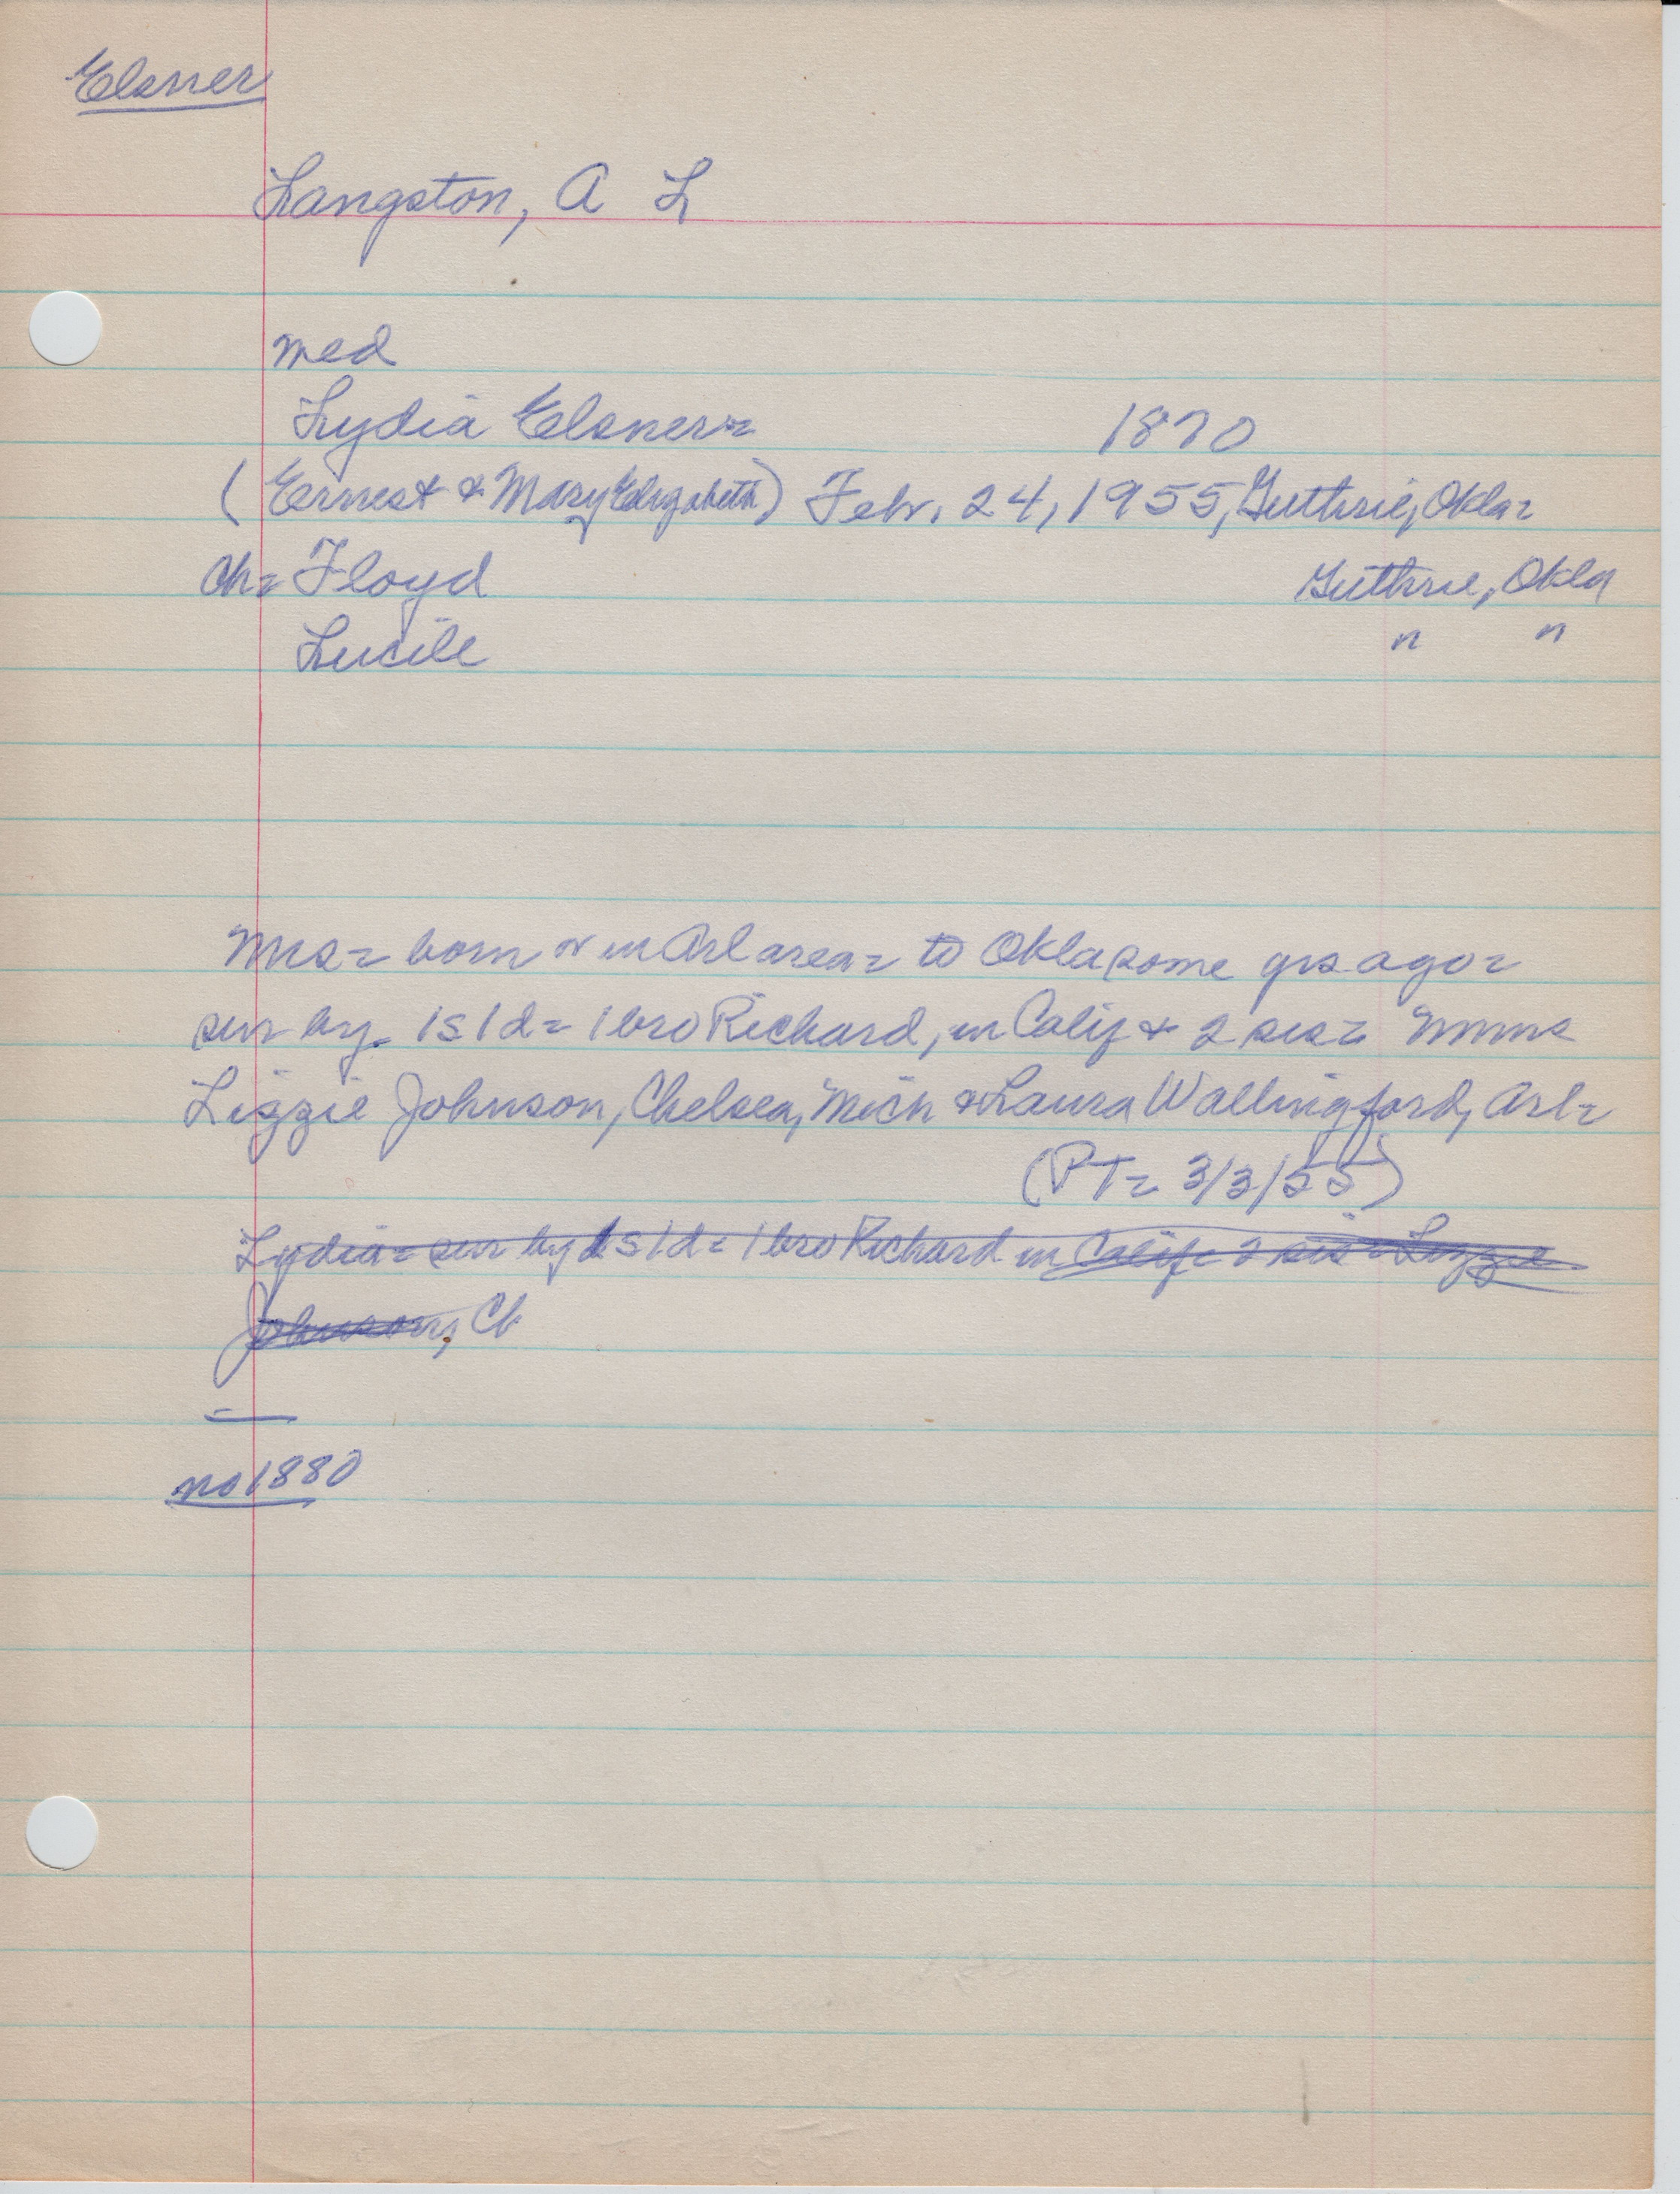 Elsner
Langston, A L
med
Lydia Elsner= 1870
(Ernest & Mary Elizabeth) Febr. 24, 1955, Guthrie, Okla=
Ch= Floyd Guthrie, Okla
Lucile " "
Mrs= born in Arl area= to Okla some yrs ago=
sur by. 1s 1d= 1 bro Richard, in Calif & 2 sis=
Lizzie Johnson, Chelsea, Mich & Laura Wallingford, Arl=
(PT= 3/3/55)
Lydia= sur by 1s 1d= 1 bro Richard in Calif= 2 sis= Lizzie
Johnson, Ch
no 1880